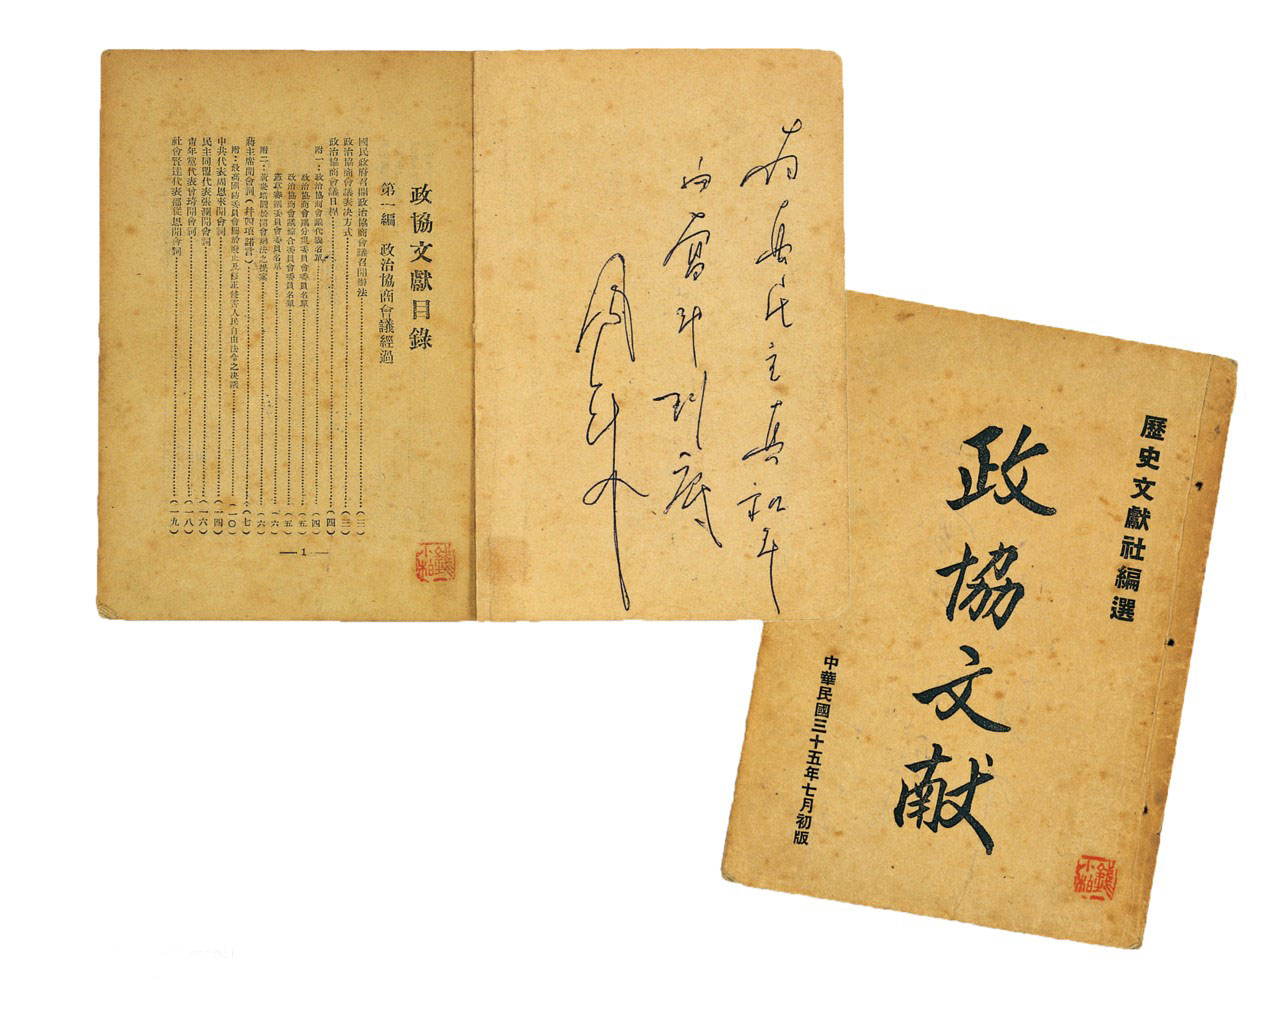 政協文獻目錄
第一編 政治協商會議經過
國民政府召開政治協商會議召開辦法……(三)
政治協商會議表决方式……(三)
政治協商會議日程……(四)
附一：政治協商會議代表名單……(四)
政治協商會議分組委員會委員名單……(五)
政治協商會議綜合委員會委員名單……(五)
憲草審議委員會委員名單……(六)
附二：黃炎培關於開會辦法之提案……(六)
蔣主席開會詞(幷四項諾言)……(七)
附：最高國防委員會關於廢止及修正侵害人民自由法令之决議……(一〇)
中共代表周恩來開會詞……(一四)
民主同盟代表張瀾開會詞……(一六)
青年黨代表曾琦開會詞……(一八)
社會賢達代表邵從恩開會詞……(一九)
— 1 —
為真民主真和平
而奮斗到底
周恩来
歷史文獻社編選
政協文献
中華民國三十五年七月初版